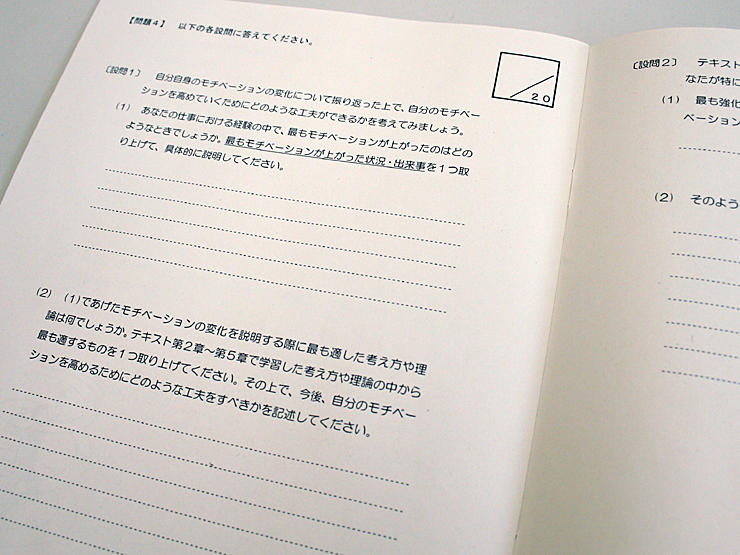 【問題4】 以下の各設問に答えてください。
／20
〔設問1〕 自分自身のモチベーションの変化について振り返った上で、自分のモチベー
ションを高めていくためにどのような工夫ができるかを考えてみましょう。
(1) あなたの仕事における経験の中で、最もモチベーションが上がったのはどの
ようなときでしょうか。最もモチベーションが上がった状況・出来事を1つ取
り上げて、具体的に説明してください。
(2) (1)であげたモチベーションの変化を説明する際に最も適した考え方や理
論は何でしょうか。テキスト第2章～第5章で学習した考え方や理論の中から
最も適するものを1つ取り上げてください。その上で、今後、自分のモチベー
ションを高めるためにどのような工夫をすべきかを記述してください。
〔設問2〕 テキスト
なたが特に
(1) 最も強化
ベーション
(2) そのよう